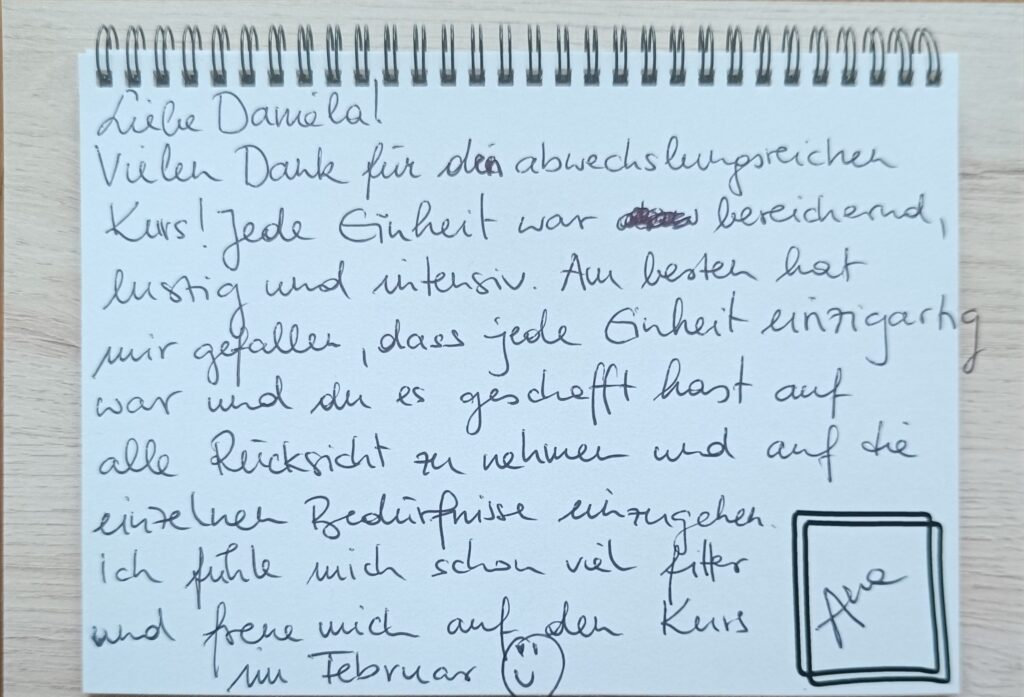 Liebe Daniela!
Vielen Dank für den abwechslungsreichen
Kurs! Jede Einheit war bereichernd,
lustig und intensiv. Am besten hat
mir gefallen, dass jede Einheit einzigartig
war und du es geschafft hast auf
alle Rücksicht zu nehmen und auf die
einzelnen Bedürfnisse einzugehen.
ich fühle mich schon viel fitter
und freue mich auf den Kurs
im Februar